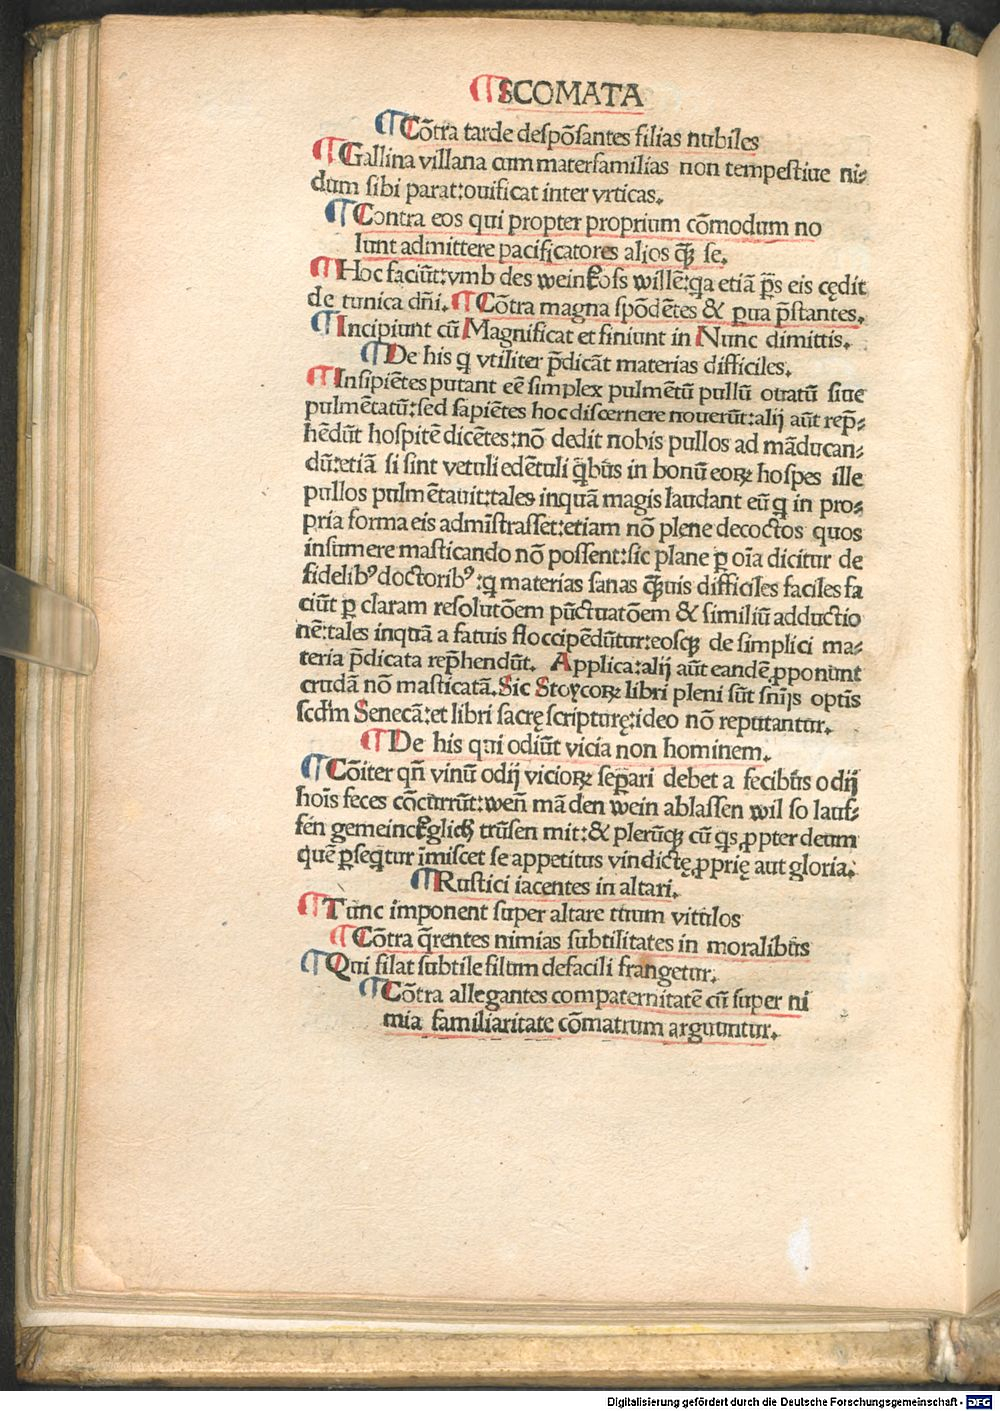 ¶SCOMATA
¶Cōtra tarde despōsantes filias nubiles
¶Gallina villana cum materfamilias non tempestiue ni⸗
dum sibi parat:ouificat inter vrticas.
¶Contra eos qui propter proprium cōmodum no
lunt admittere pacificatores alios q̄ꝫ se.
¶Hoc faciūt:vmb des weinkoſs willē:qa etiā p̄s eis cędit
de tunica dñi. ¶Cōtra magna spōdētes & ꝑua p̄stantes.
¶Incipiunt cū Magnificat et finiunt in Nunc dimittis.
¶De his q vtiliter p̄dicāt materias difficiles.
¶Insipiētes putant eē simplex pulmētū pullū ouatū siue
pulmētatū:sed sapiētes hoc discernere nouerūt:alij aūt rep̄⸗
hēdūt hospitē dicētes:nō dedit nobis pullos ad māducan⸗
dū:etiā si sint vetuli edētuli q̄bus in bonū eoꝝ hospes ille
pullos pulmētauit:tales inquā magis laudant eū q in pro⸗
pria forma eis admīstrasset:etiam nō plene decoctos quos
insumere masticando nō possent:sic plane ꝑ oīa dicitur de
fidelibꝰ doctoribꝰ:q materias sanas q̄ꝫuis difficiles faciles fa
ciūt ꝑ claram resolutōem pūctuatōem & similiū adductio
nē:tales inquā a fatuis floccipēdūtur:eosqꝫ de simplici ma⸗
teria p̄dicata rep̄hendūt. Applica:alij aūt eandē ꝓponunt
crudā nō masticatā.Sic Stoycoꝝ libri pleni sūt sñijs optīs
scd̄m Senecā:et libri sacrę scripturę:ideo nō reputantur.
¶De his qui odiūt vicia non hominem.
¶Cōiter qñ vinū odij vicioꝝ seꝑari debet a fecibus odij
hoīs feces cōcurrūt:weñ mā den wein ablassen wil so lauf⸗
fen gemeincklich trūsen mit:& plerūqꝫ cū qs ꝓpter deum
quē ꝑseqtur īmiscet se appetitus vindictę ꝓprię aut gloria.
¶Rustici iacentes in altari.
¶Tunc imponent super altare tuum vitulos
¶Cōtra q̄rentes nimias subtilitates in moralibus
¶Qui filat subtile filum defacili frangetur.
¶Cōtra allegantes compaternitatē cū super ni
mia familiaritate cōmatrum arguuntur.
Digitalisierung gefördert durch die Deutsche Forschungsgemeinschaft - DFG